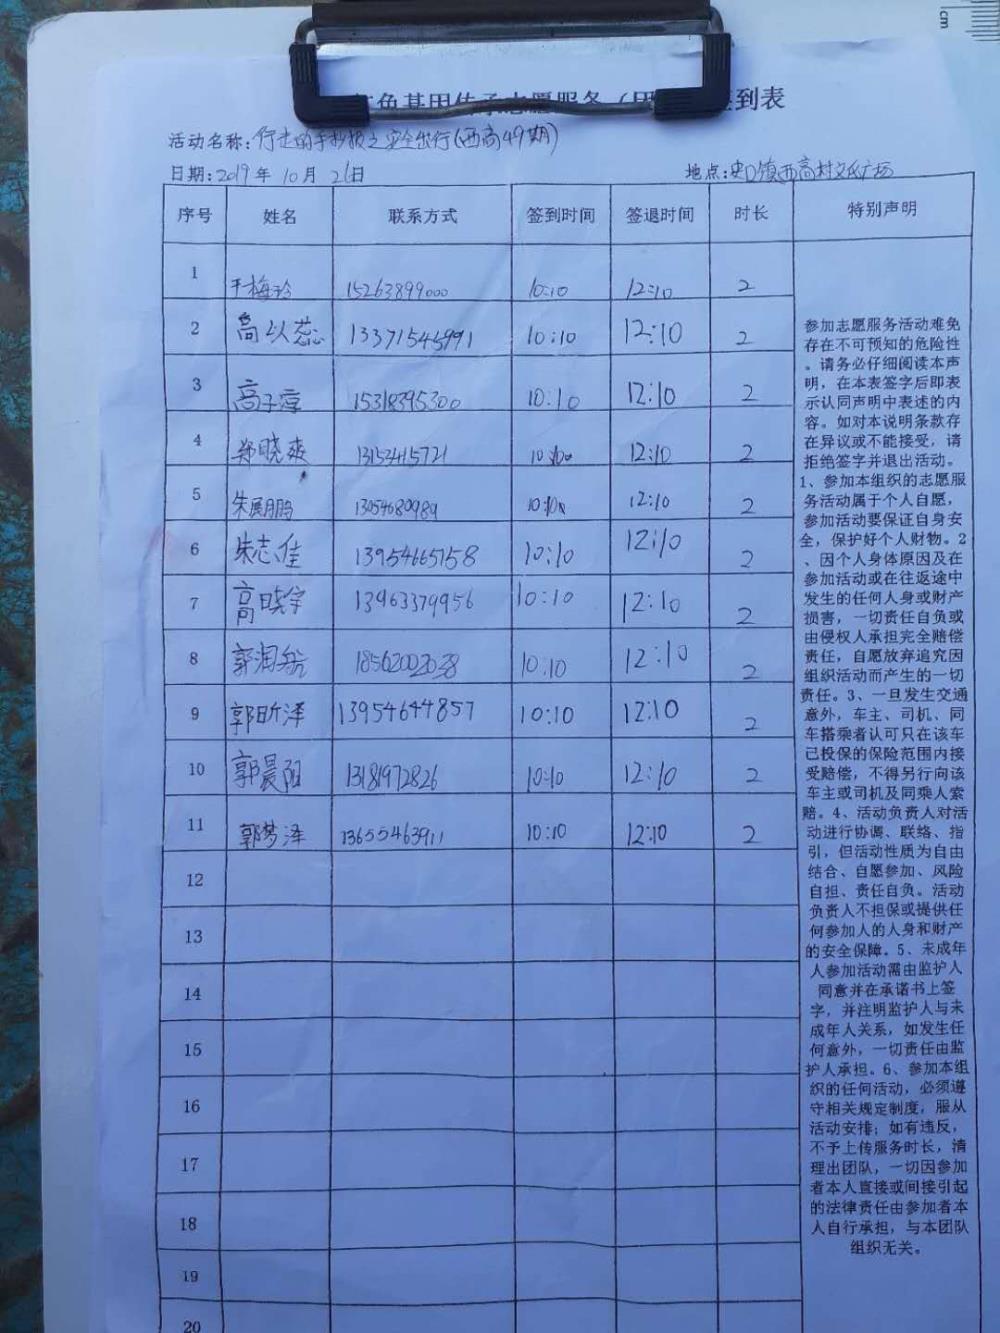 红色基因传承志愿服务（团 签到表
活动名称:行走的手抄报之安全出行(西高49期)
日期:2019年10月26日 地点:史口镇西高村文化广场
序号 姓名 联系方式 签到时间 签退时间 时长 特别声明
1 于梅玲 15263899000 10:10 12:10 2
2 高以蕊 13371545991 10:10 12:10 2
3 高子淳 15318395300 10:10 12:10 2
4 郑晓爽 13153415721 10:10 12:10 2
5 朱展鹏 13054680989 10:10 12:10 2
6 朱志佳 13954665758 10:10 12:10 2
7 高晓宇 13963379956 10:10 12:10 2
8 郭润航 18562002038 10:10 12:10 2
9 郭昕泽 13954644857 10:10 12:10 2
10 郭晨阳 13181972826 10:10 12:10 2
11 郭梦泽 13655463911 10:10 12:10 2
12
13
14
15
16
17
18
19
20
参加志愿服务活动难免
存在不可预知的危险性
。请务必仔细阅读本声
明，在本表签字后即表
示认同声明中表述的内
容。如对本说明条款存
在异议或不能接受，请
拒绝签字并退出活动。
1、参加本组织的志愿服
务活动属于个人自愿，
参加活动要保证自身安
全，保护好个人财物。2
、因个人身体原因及在
参加活动或在往返途中
发生的任何人身或财产
损害，一切责任自负或
由侵权人承担完全赔偿
责任，自愿放弃追究因
组织活动而产生的一切
责任。3、一旦发生交通
意外，车主、司机、同
车搭乘者认可只在该车
已投保的保险范围内接
受赔偿，不得另行向该
车主或司机及同乘人索
赔。4、活动负责人对活
动进行协调、联络、指
引，但活动性质为自由
结合、自愿参加、风险
自担、责任自负。活动
负责人不担保或提供任
何参加人的人身和财产
的安全保障。5、未成年
人参加活动需由监护人
同意并在承诺书上签
字，并注明监护人与未
成年人关系，如发生任
何意外，一切责任由监
护人承担。6、参加本组
织的任何活动，必须遵
守相关规定制度，服从
活动安排；如有违反，
不予上传服务时长，清
理出团队，一切因参加
者本人直接或间接引起
的法律责任由参加者本
人自行承担，与本团队
组织无关。
cm